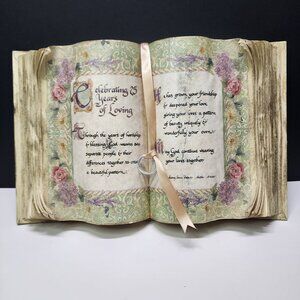 Celebrating 25
Years
of Loving
Through the years of hardship
& blessing God weaves two
separate people & their
differences together to create
a beautiful pattern.
He has grown your friendship
& deepened your love,
giving your lives a pattern
of beauty uniquely &
wonderfully your own.
May God continue weaving
your lives together